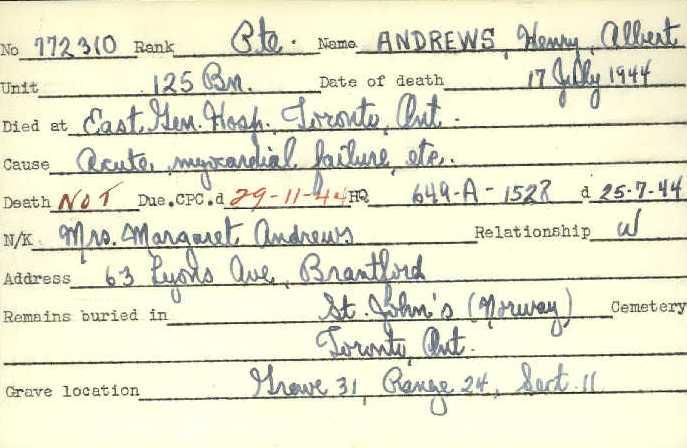 No 772310 Rank Pte. Name ANDREWS, Henry, Albert
Unit 125 Bn. Date of death 17 July 1944
Died at East Gen. Hosp. Toronto, Ont.
Cause Acute, myocardial failure, etc.
Death NOT Due.CPC.d 29-11-44 HQ 649-A-1528 d 25-7-44
N/K Mrs. Margaret Andrews Relationship W
Address 63 Lyons Ave, Brantford
Remains buried in St. John's (Norway) Cemetery
Toronto, Ont.
Grave location Grave 31, Range 24, Sect. 11